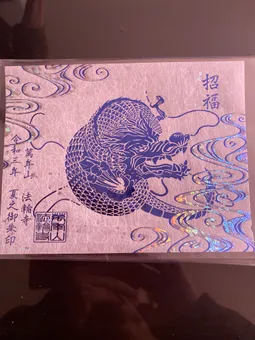 招福
萬年山 法輪寺
令和三年 夏之御朱印